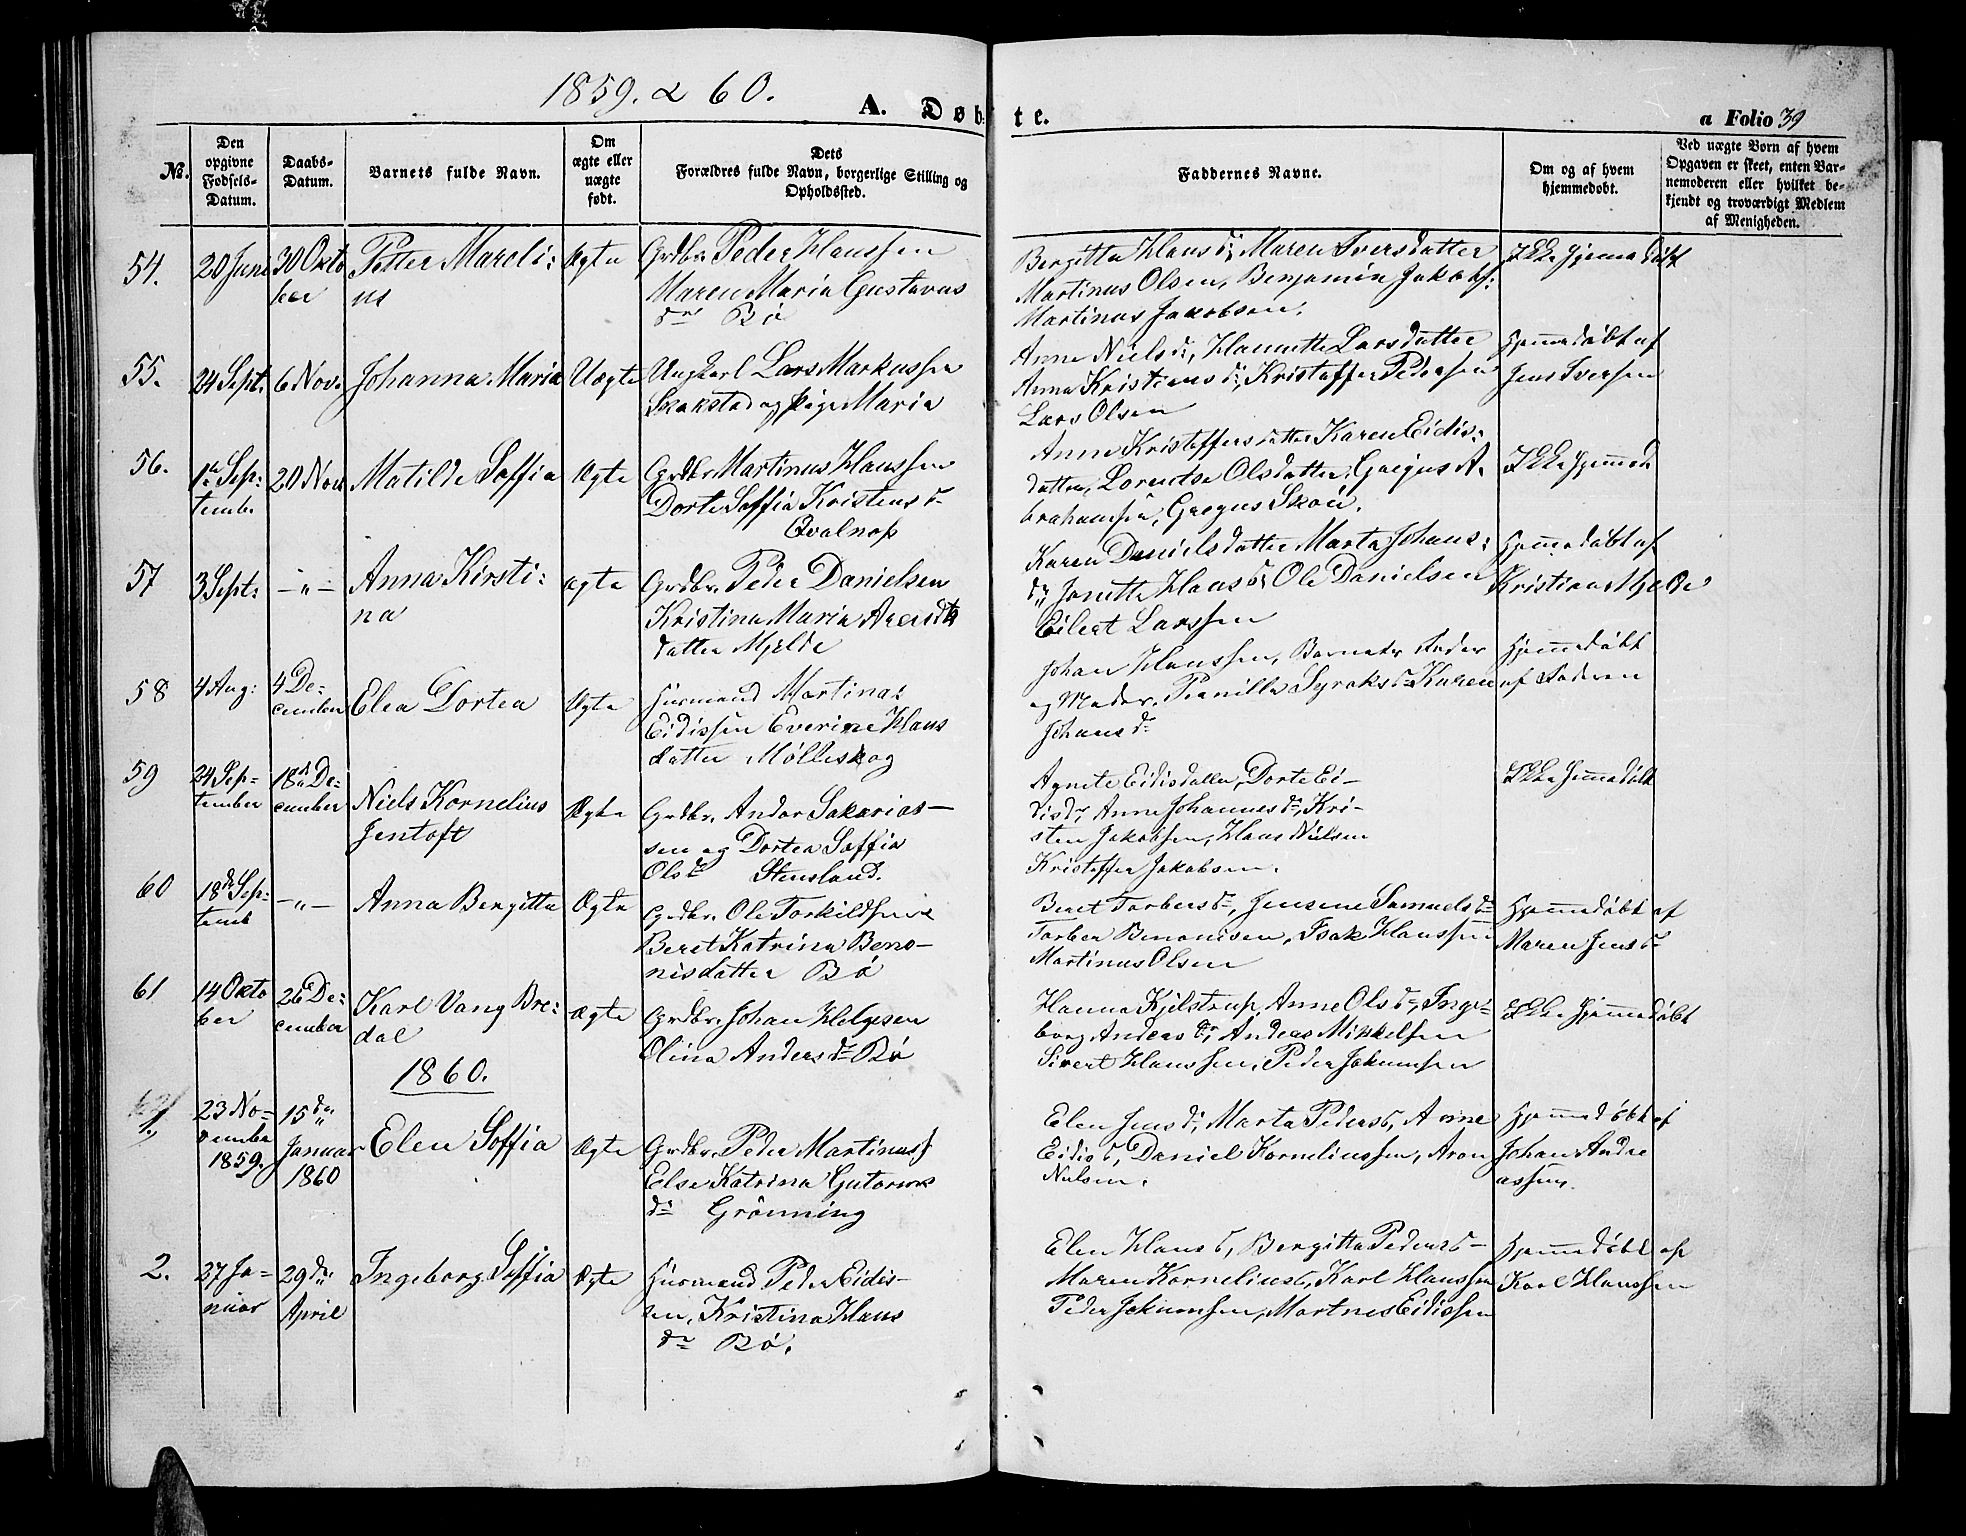 1859. & 60.
A. Døbte.
a Folio 39
No.
Den opgivne Fødsels-Datum.
Daabs-Datum.
Barnets fulde Navn.
Om ægte eller uægte født.
Dets Forældres fulde Navn, borgerlige Stilling og Opholdssted.
Faddernes Navne.
Om og af hvem hjemmedøbt.
Ved uægte Børn af hvem Opgaven er skeet, enten Barnemoderen eller hvilket bekjendt og troværdigt Medlem af Menigheden.
54. 20 Juni 30 Okto
ber
Petter Maroli:
us
Ægte
Grdbr. Peder Hanssen
Maren Maria Gustavus
dr Bö
Bergitta Hansdr, Maren Iversdatter
Martinus Olsen, Benjamin Jakobs:
Martinus Jakobsen.
Ikke Hjemmedöbt
55. 24 Sept. 6 Nov. Johanna Maria
Uægte
Ungkarl Lars Markussen
Skakstad og pige Maria
Anne Nielsdr, Hannette Larsdatter
Anna Kristiansdr, Kristoffer Pedersen
Lars Olsen
Hjemmedöbt af
Jens Iversen
56. 1te Sep:
tember
20 Nov
Matilde Soffia
Ægte
Grdbr. Martinus Hanssen
Dorte Soffia Kristensdr
Qvalnæs
Anne Kristoffersdatter Karen Eidis:
datter, Lorentse Olsdatter, Gregus A:
brahamsen, Gregus Skoni.
Ikke Hjemmed
57 3 Sept: -"-
Anna Kirsti:
na
ægte
Grdbr. Peder Danielsen
Kristina Maria Arents
datter Mjelde
Karen Danielsdatter Marta Johans:
dr, Janette Hansdr, Ole Danielsen
Eilert Larssen
Hjemmedöbt af
Kristian Mjelde
58 4 Aug: 4 De-
cember
Elea Dortea
Ægte
Husmand Martinus
Eidissen Everine Hans
datter Mölleskog
Johan Hanssen, Barnets Fader
og Moder, Pernilla Syraksdr Karen
Johansdr
Hjemmedöbt
af Faderen
59 24 Sep-
tember
18de De-
cember
Niels Kornelius
Jentoft
Ægte
Grdbr. Andor Sakarias-
sen og Dortea Soffia
Olsdr Stensland.
Agnete Eidisdatter, Dorte Ei-
disdr, Anne Johannesdr, Kri-
sten Jakobsen, Hans Nielsen
Kristoffer Jakobsen.
Ikke Hjemmedöbt
60 18de Sep:
temb
-"-
Anna Bergitta
Ægte
Grdbr. Ole Torkildsen
Beret Katrina Beno-
nisdatter Bö
Beret Torbersdr, Jensene Samuelsdr
Torber Benonisen, Isak Hanssen
Martinus Olsen
Hjemmedöbt af
Maren Jensdr
61 14 Okto
ber
26 De-
cember
Karl Vang Bre-
dal
ægte
Grdbr. Johan Helgesen
Olina Andersdr Bö
Hanna Kjelstrup, Anne Olsdr, Inge-
borg Andersdr, Andreas Mikkelsen
Sivert Hanssen, Peder Jokumsen
Ikke Hjemmedöbt
1860.
1. 23 No-
vember
1859.
15de
Januar
1860
Elen Soffia
Ægte
Grdbr. Peder Martinuss
Else Katrina Gutorms
dr Grönning
Elen Jensdr, Marta Pedersdr, Anne
Eidisdr, Daniel Korneliussen, Aron
Nilsen.
Hjemmedöbt af
Johan Andre
assen.
2. 27 Ja-
nuar
29de
April
Ingeborg Soffia
Ægte
Husmand Peder Eidis-
sen, Kristina Hans
dr Bö.
Elen Hansdr, Bergitta Pedersdr
Maren Korneliusdr, Karl Hanssen
Peder Jokumsen, Martines Eidissen
Hjemmedöbt af
Karl Hanssen